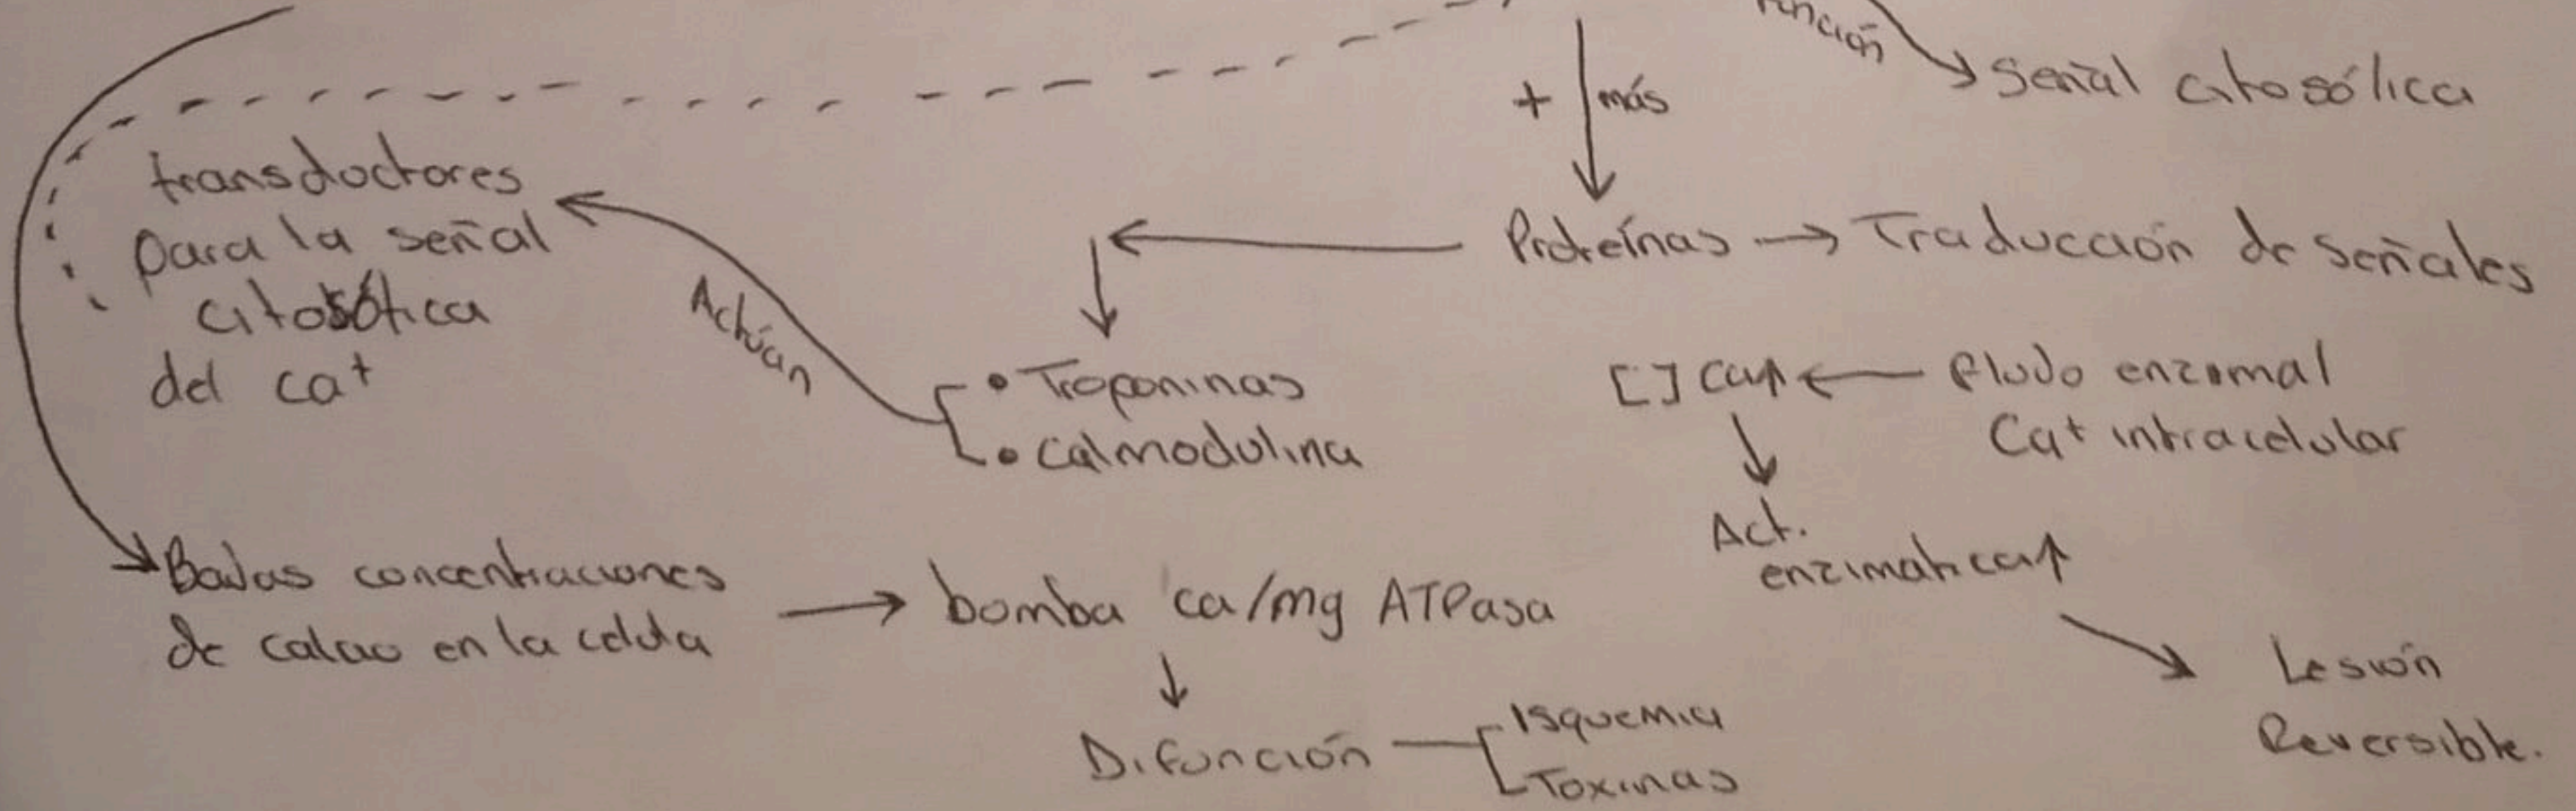 Señal citosólica
+ más
transductores
para la señal
citosólica
del ca+
Actúan
Proteínas → Traducción de señales
• Troponinas
• calmodulina
[ ] Ca↑ ← flujo enzimal
Ca+ intracelular
Act.
enzimatica↑
Bajas concentraciones
de calcio en la celula
→ bomba ca/mg ATPasa
Difunción
Isquemia
Toxinas
Lesión
Reversible.